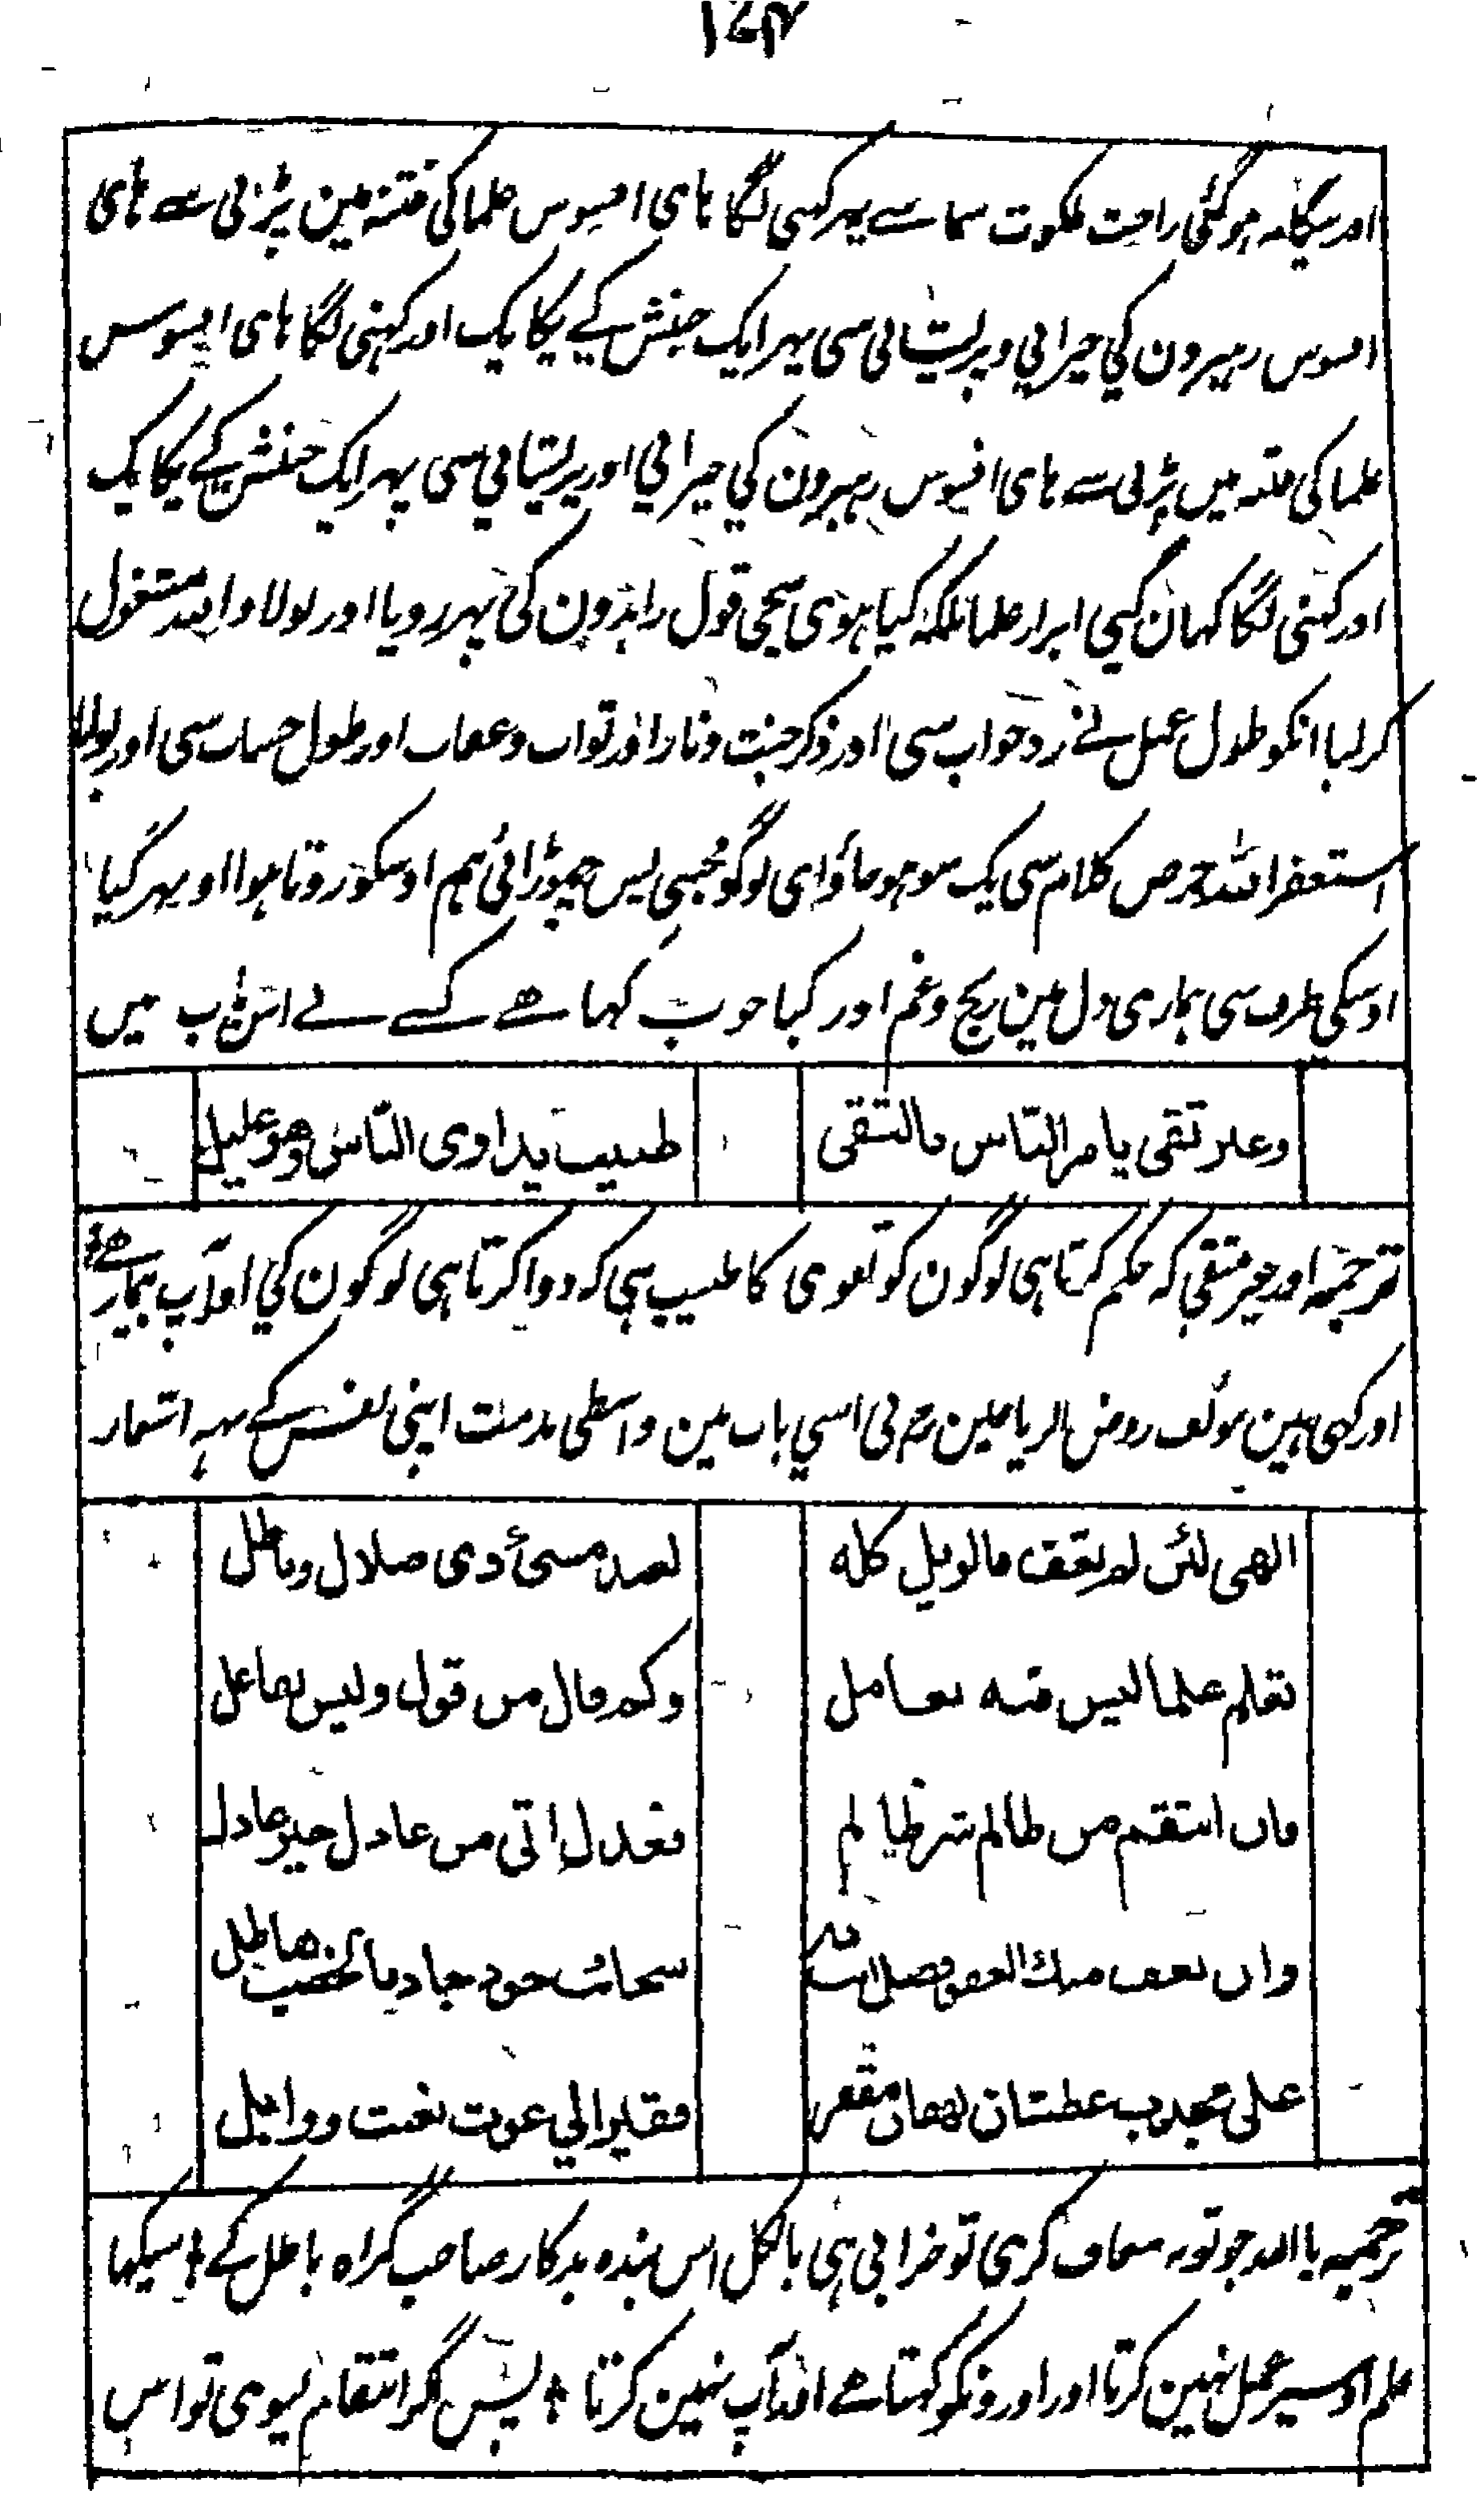 ۱۷۴
اور بیگانہ ہو گئی راحت ملکوت سما سے پہر کہی لگا ہای افسوس علما کی فتنہ مین پڑنی سے ہای
افسوس رہبرون کی حیرانی و پریشانی سی پہر ایک جنبش کے یکایک اور کہنی لگا ہای افسوس
علما کی فتنہ میں پڑنی سے ہای افسوس رہبرون کی حیرانی اور پریشانی سی پہر ایک جنبش کے یکایک
اور کہنی لگا کہان گیی ابرار علما بلکہ کیا ہوی سچی قول زاہدون کی پہر رویا اور بولا واللہ مشغول
کر لیا انکو طول عمل نے رد جواب سی اور ذکر جنت و نار اور ثواب و عقاب اور طول حساب سی اور بولا
استغفر اللہ کلام سی یک سو ہو جاؤ ای لوگو مجہسی پس چہوڑ آئی ہم اوسکو روتا ہوا اور بہر گیا
اوسکی طرف سی ہماری دل مین رنج و غم اور کیا خوب کہا ھے کسے نے اس باب میں
وغیر تقی یامر الناس بالتقی
طبیب یداوی الناس وھو علیل
ترجمہ اور غیر متقی کہ حکم کرتا ہی لوگون کو تقوی کا طبیب ہی کہ دوا کرتا ہی لوگون کی اور آپ بیمار ھے
اور کہی ہین مولف روض الریاحین رح نی اسی باب مین واسطی مذمت اپنی نفس کے یہ اشعار
الھی لئن لم تعف فالویل کلہ
لعبد مسئ ذی ضلال وباطل
تعلم علما لیس منہ بعامل
وکم قال من قول ولیس بفاعل
فان انتقم من ظالم شر ظالم
فعدل اتی من عادل خیر عادل
وان تعف منک العفو فضل
سحائب جود جاد بالخصب ھاطل
علی مجدب عطشان لھفان مقفر
فقیر الی غوث بغیث ووابل
ترجمہ یا اللہ جو تو نہ معاف کری تو خرابی ہی بالکل اس بندہ بدکار صاحب گمراہ باطل کے ؛ سیکہا
علم اوسپر عمل نہین کرتا اور اورونکو کہتا ھے اور آپ نہین کرتا ؛ پس گر انتقام لیوی تو اس